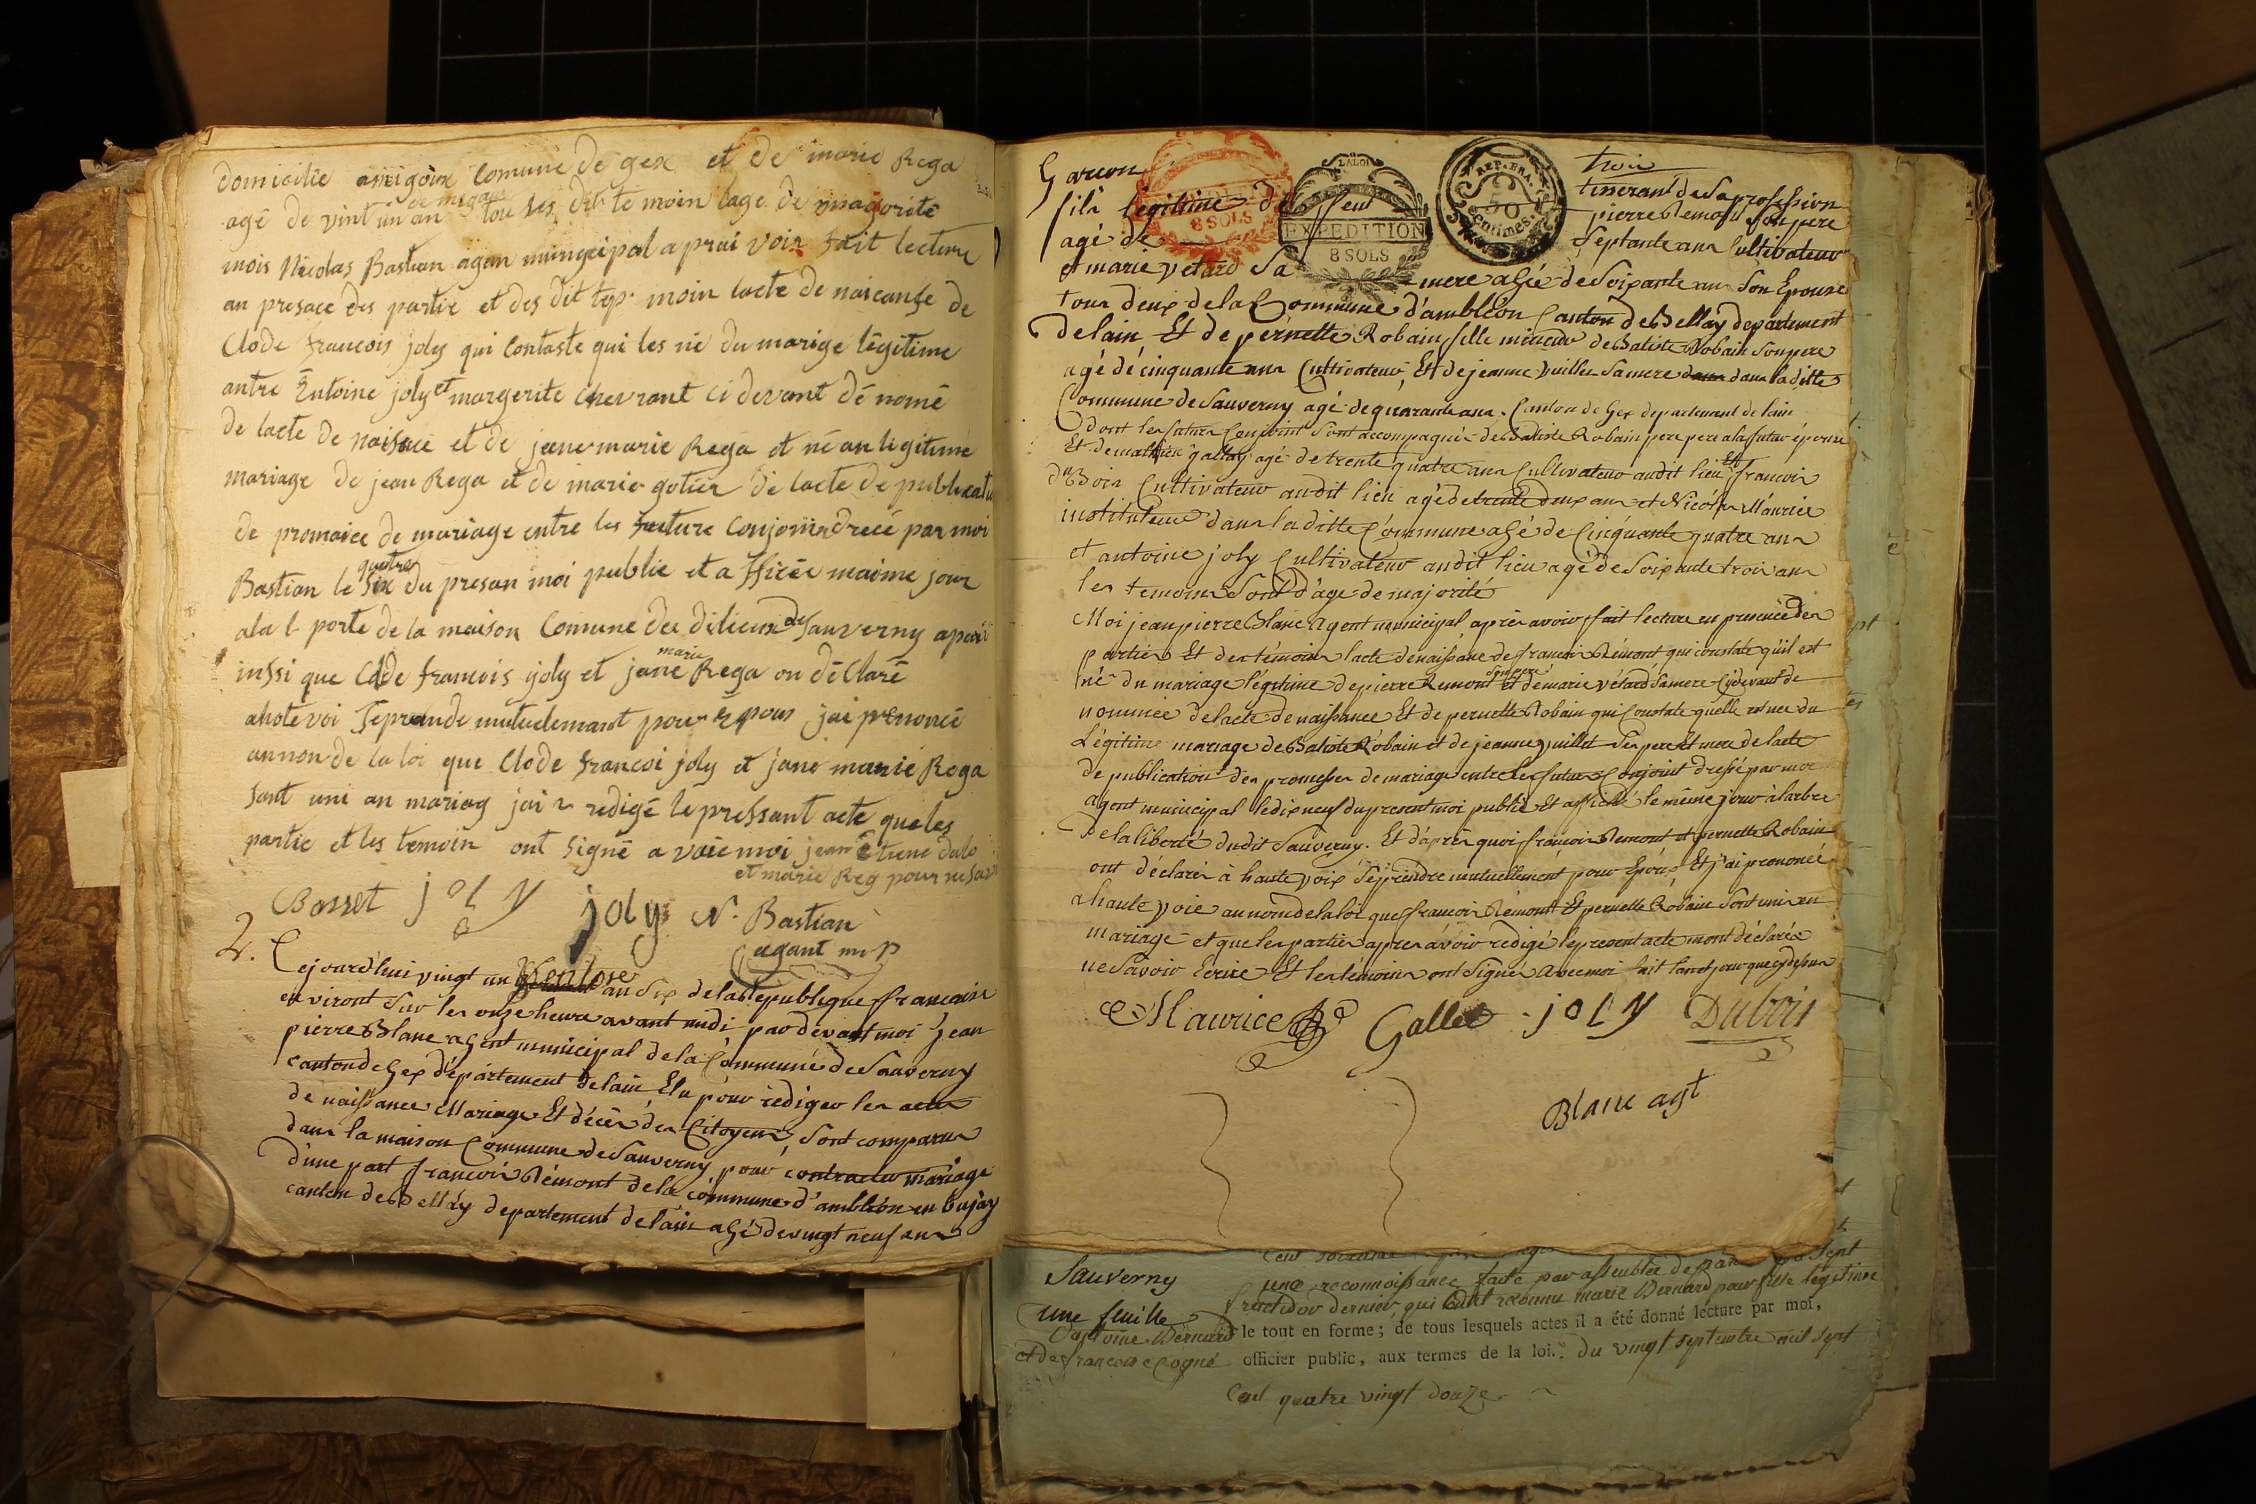 domicilie a migoux comune de gex et de marie Rega
agé de vint un an de mega tou les dit te moin lage de magorité
mois Nicolas Bastian agan municipal a prai voir fait lecture
an presace des partie et des dit tep moin lacte de naicanse de
Clode francois joly qui contaste qui les nié du marige légitime
antre Entoine joly et margerite Chevrant ci devant dé nomé
de lacte de naisace et de jane marie Rega et né an legitime
mariage de jean Rega et de marie gotier de lacte de publicatu
de promaice de mariage entre les future conjoin drecé par moi
Bastian le six quatre du presan moi publié et a fficée maime jour
ala l porte de la maison Comune des dilieux de Sauverny aparé
inssi que Clode francois joly et jane marie Rega on déClaré
ahote voi Seprande mutuelemant pour Epous jai prenoncé
annon de la loi que Clode francoi joly et jane marie Rega
sont uni an mariag jai redigé le pressant acte que les
partie et les temoin ont signé a vaic moi jean Etiene dulo
et marie Reg pour ne savoi
Bosset joly joly N. Bastian
agant m p
2. Cejourdhui vingt un Ventose an Six de la Republique francaise
environt sur les onze heure avant midi par devant moi Jean
pierre Blanc agent municipal de la Commune de Sauverny
canton de Gex département de lain Elu pour rediger les actes
de naissance Mariage Et décès des Citoyens, sont comparus
dans la maison Commune de Sauverny pour contracter mariage
d'une part francois Rémont de la commune d'ambléon en bujay
canton de Bellay departement de lain agé de vingt neuf ans
Garcon trois
tinerant de Sa profession
fils légitime de feu pierre Remont Son pere
8 SOLS
LA LOI
EXPEDITION
8 SOLS
REP. FRA.
50
Centimes.
agé de Septante ans Cultivateur
et marie vétard Sa mere agée de Soixante ans Son Epouse
tous deux de la Commune d'ambléon Canton de Bellay departement
de lain Et de pernette Robain fille mineure de Batiste Robain Son pere
agé de cinquante ans Cultivateur, Et de jeanne vuillet Sa mere dans dans la ditte
Commune de Sauverny agé de quarante ans. Canton de Gex departement de lain
dont les futurs Conjoint Sont accompagnés de Batiste Robain pere pere a la futur épouse
Et de mathieu gallay agé de trente quatre ans Cultivateur audit lieu Et francois
duBois Cultivateur audit lieu agé de trente deux ans et Nicolas Maurice
instituteur dans la ditte Commune agé de Cinquante quatre ans
et antoine joly Cultivateur audit lieu agé de Soixante trois ans
les temoins Sont d'age de majorité
Moi jean pierre Blanc Agent municipal après avoir fait lecture en presence des
parties Et des témoins lacte de naissance de francois Rémont qui constate qu'il est
né du mariage légitime de pierre Remont Son pere et de marie vétard Sa mere Cydevant de
nommée de lacte de naissance Et de pernette Robain qui Constate quelle est née du
Légitime mariage de Batiste Robain et de jeanne vuillet Ses pere Et mere de lacte
de publication des promesses de mariage entre les futurs Conjoint dressé par moi
agent municipal le dix neuf du present moi publié Et affiché le même jour à larbre
de la liberté dudit Sauverny. Et d'après quoi francois Remont et pernette Robain
ont déclarés à haute voix Se prendre mutuellement pour Epoux Et j'ai prononcé
a haute voie au nom de la loi que francois Rémont Et pernette Robain Sont unis en
mariage et que les parties apres avoir redigé le present acte mont déclarés
ne Savoir Ecrire Et les témoins ont Signer avec moi fait lan et jour que cydessus
Maurice Gallet joly Dubois
Blanc agt
Sauverny
une feuille
Cent
une reconnoissance faite par assemblée de
fructidor dernier qui ont reconnu marie Bernard pour fille légitime
Bernard le tout en forme; de tous lesquels actes il a été donné lecture par moi,
et de francoise officier public, aux termes de la loi. du vingt septembre mil sept
Cent quatre vingt douze